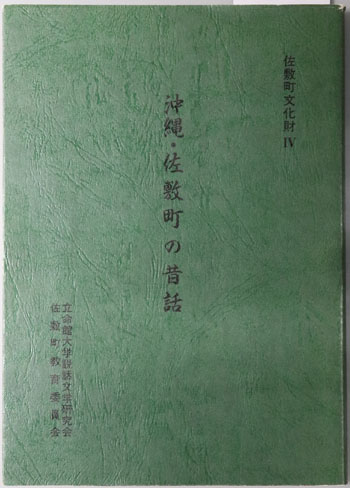 佐敷町文化財 Ⅳ
沖縄・佐敷町の昔話
立命館大学説話文学研究会
佐敷町教育委員会